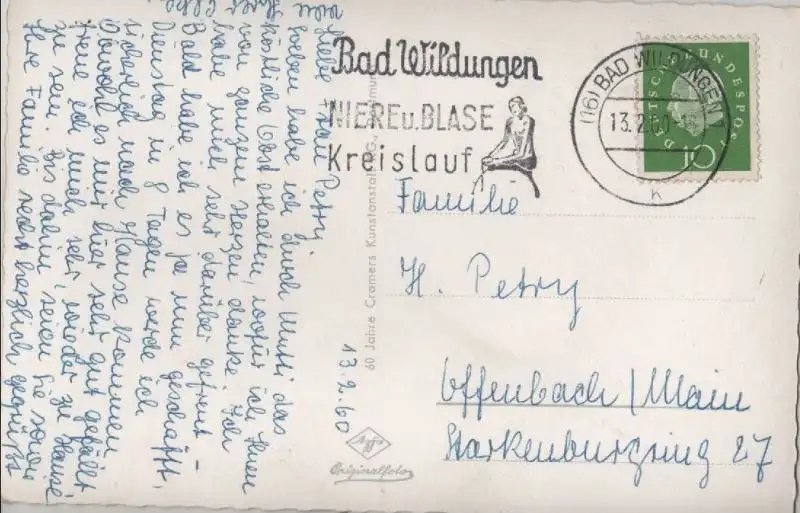 Liebe Frau Petry
soeben habe ich durch Mutti das
köstliche Obst erhalten, wofür ich Ihnen
von ganzem Herzen danke. Ich
habe mich sehr darüber gefreut –
Bald habe ich es ja nun geschafft,
Dienstag in 8 Tagen werde ich
sicherlich nach Hause kommen
Obwohl es mir hier sehr gut gefällt
freue ich mich sehr, wieder zu Hause
zu sein. Bis dahin seien Sie sowie
Ihre Familie recht herzlich gegrüßt
13.2.60
60 Jahre Cramers Kunstanstalt
Agfa
Originalfoto
Bad Wildungen
NIERE u. BLASE
Kreislauf
(16) BAD WILDUNGEN 1
13.2.60
k
DEUTSCHE BUNDESPOST
10
Familie
H. Petry
Offenbach/Main
Starkenburgring 27